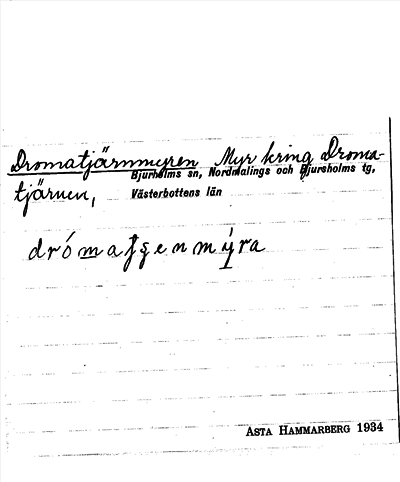 Dromatjärnmyren Myr kring Droma-
Bjurholms sn, Nordmalings och Bjursholms tg,
tjärnen, Västerbottens län
drómatʃenmýra
ASTA HAMMARBERG 1934